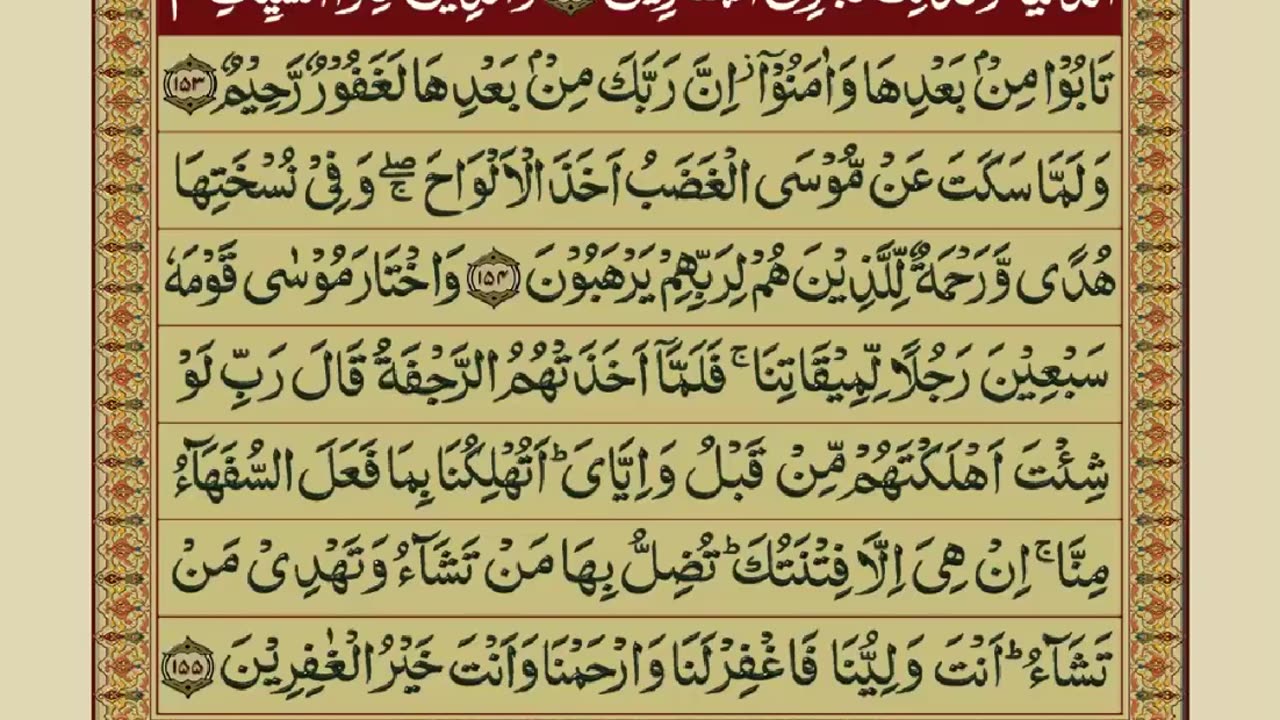 تَابُوْا مِنْۢ بَعْدِهَا وَاٰمَنُوْۤا ؗ اِنَّ رَبَّكَ مِنْۢ بَعْدِهَا لَغَفُوْرٌ رَّحِيْمٌ ۝۱۵۳
وَلَمَّا سَكَتَ عَنْ مُّوْسَى الْغَضَبُ اَخَذَ الْاَلْوَاحَ ۖۚ وَفِيْ نُسْخَتِهَا
هُدًى وَّرَحْمَةٌ لِّلَّذِيْنَ هُمْ لِرَبِّهِمْ يَرْهَبُوْنَ ۝۱۵۴ وَاخْتَارَ مُوْسٰى قَوْمَهٗ
سَبْعِيْنَ رَجُلًا لِّمِيْقَاتِنَا ۚ فَلَمَّاۤ اَخَذَتْهُمُ الرَّجْفَةُ قَالَ رَبِّ لَوْ
شِئْتَ اَهْلَكْتَهُمْ مِّنْ قَبْلُ وَاِيَّايَ ؕ اَتُهْلِكُنَا بِمَا فَعَلَ السُّفَهَآءُ
مِنَّا ۚ اِنْ هِيَ اِلَّا فِتْنَتُكَ ؕ تُضِلُّ بِهَا مَنْ تَشَآءُ وَتَهْدِيْ مَنْ
تَشَآءُ ؕ اَنْتَ وَلِيُّنَا فَاغْفِرْ لَنَا وَارْحَمْنَا وَاَنْتَ خَيْرُ الْغٰفِرِيْنَ ۝۱۵۵